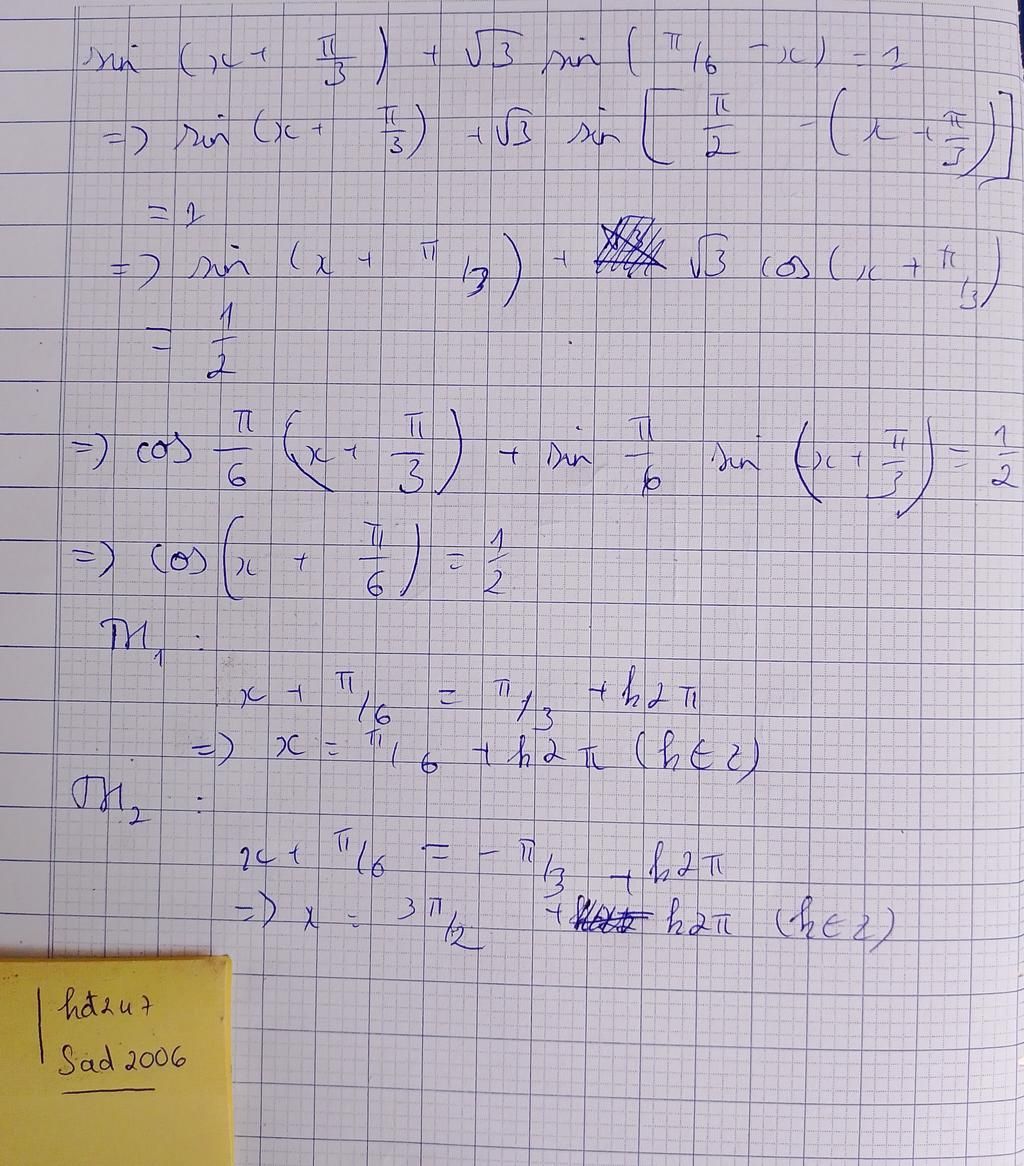 sin (x + π/3) + √3 sin (π/6 - x) = 1
=> sin (x + π/3) + √3 sin [π/2 - (x + π/3)]
= 1
=> sin (x + π/3) + √3 cos (x + π/3)
= 1/2
=> cos π/6 (x + π/3) + sin π/6 sin (x + π/3) = 1/2
=> cos (x + π/6) = 1/2
TH1 :
x + π/6 = π/3 + k2π
=> x = π/6 + k2π (k ∈ z)
TH2 :
x + π/6 = - π/3 + k2π
=> x = 3π/2 + k2π (k ∈ z)
hđ247
Sad 2006